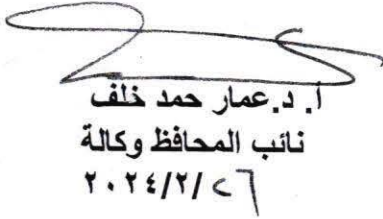 أ. د. عمار حمد خلف
نائب المحافظ وكالة
٢٠٢٤/٢/٢٦